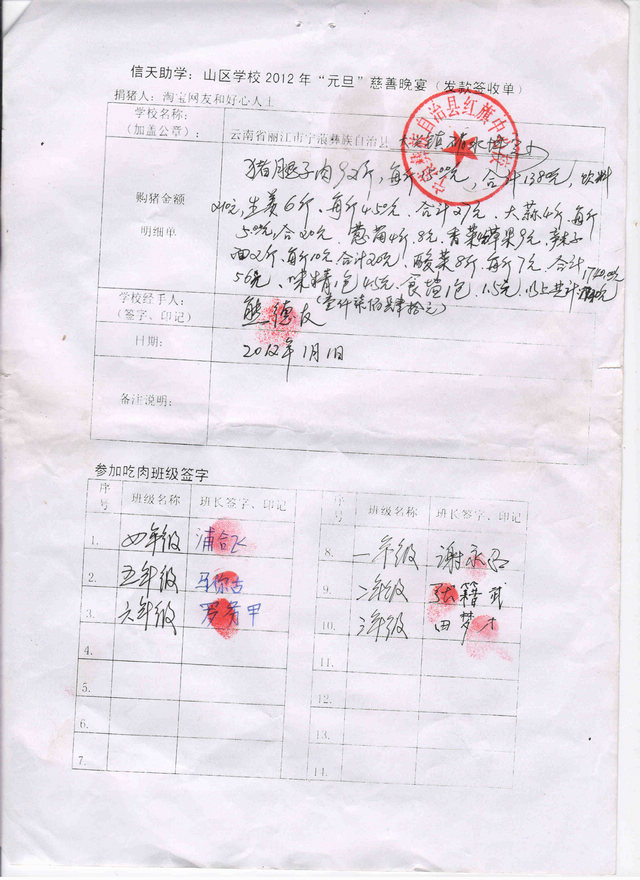 信天助学：山区学校2012年“元旦”慈善晚宴（发款签收单）
捐猪人：淘宝网友和好心人士
学校名称：
（加盖公章）：
云南省丽江市宁蒗彝族自治县
自治县红旗中
购猪金额
明细单
猪腿子肉92斤，每斤15.00元，合计1380元，饮料
210元，生姜6斤、每斤4.50元、合计27元、大蒜4斤、每斤
5.00元，合20元
4斤、8元、香菜 草果9元、辣子
面2斤、每斤10元合计20元、酸菜8斤、每斤7元、合计
1740.00元
56元、味精1包4.5元、食盐1包、1.5元、以上共计
（壹仟柒佰肆拾元）
学校经手人：
（签字、印记）
熊德友
日期：
2012年1月1日
备注说明：
参加吃肉班级签字
序号 班级名称 班长签字、印记
1. 四年级
2. 五年级 马你古
3. 六年级
4.
5.
6.
7.
序号 班级名称 班长签字、印记
8. 一年级 谢永
9. 二年级 张籍武
10. 三年级 田梦才
11.
12.
13.
14.